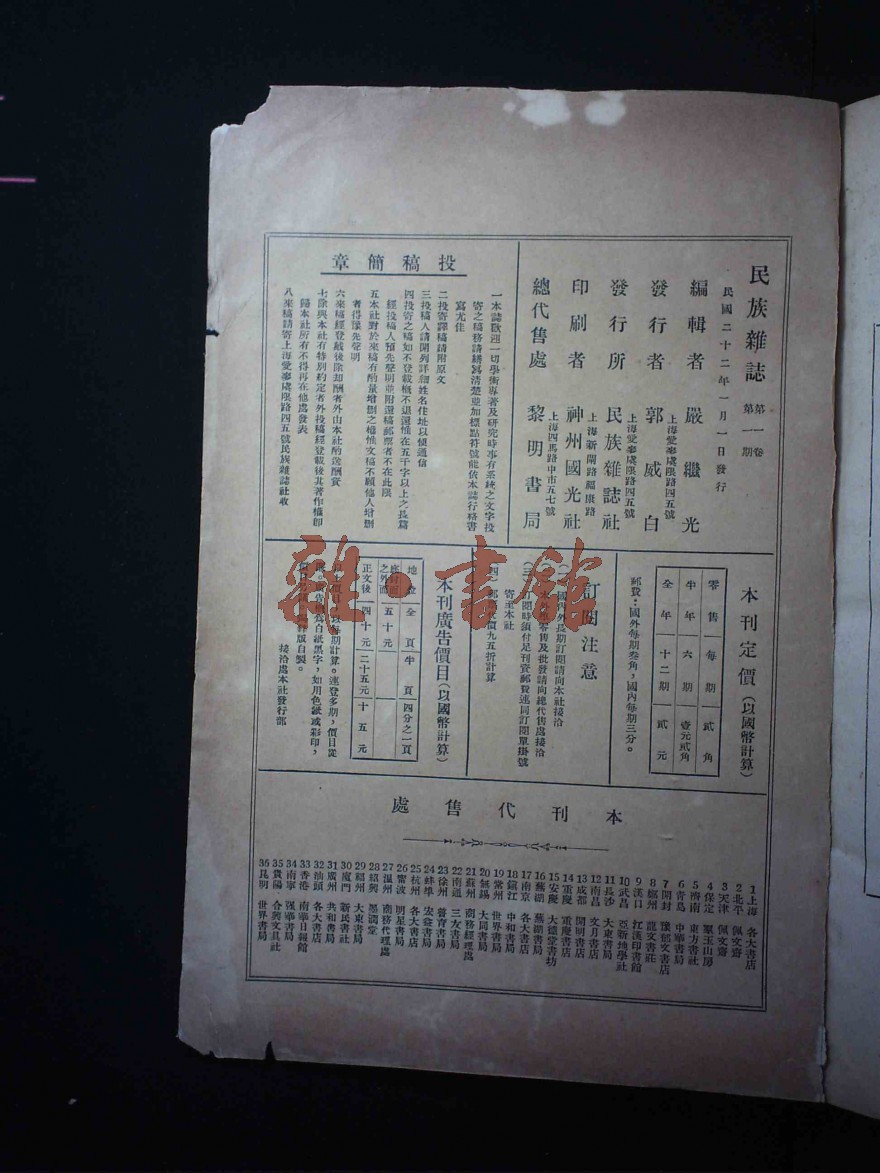 民族雜誌 第一卷 第一期
民國二十二年一月一日發行
編輯者 嚴繼光
上海愛麥虞限路四五號
發行者 郭威白
上海愛麥虞限路四五號
發行所 民族雜誌社
上海新閘路福康路
印刷者 神州國光社
上海四馬路中市五七號
總代售處 黎明書局
投稿簡章
一本誌歡迎一切學術專著及研究時事有系統之文字投
寄之稿務請繕寫清楚並加標點符號能依本誌行格書
寫尤佳
二投寄譯稿請附原文
三投稿人請開列詳細姓名住址以便通信
四投寄之稿如不登載概不退還惟在五千字以上之長篇
經投稿人預先聲明並附還稿郵票者不在此限
五本社對於來稿有酌量增删之權惟文稿不願他人增删
者得讓先聲明
六來稿經登載後除却酬者外由本社酌送酬資
七除與本社有特別約定者外投稿經登載後其著作權即
歸本社所有不得再在他處發表
八來稿請寄上海愛麥虞限路四五號民族雜誌社收
本刊定價(以國幣計算)
零售 每期 貳角
半年 六期 壹元貳角
全年 十二期 貳元
郵費:國外每期叁角,國內每期三分。
訂閱注意
(一)國內外長期訂閱請向本社接洽
零售及批發請向總代售處接洽
(三)訂閱時須付足刊資郵費連同訂閱單掛號
寄至本社
(四)郵票代價九五折計算
本刊廣告價目(以國幣計算)
地位 全頁 半頁 四分之一頁
底封面之外面 五十元
正文後 四十元 二十五元 十五元
每期計算。連登多期,價目從
廉。廣告概為白紙黑字,如用色紙或彩印,
製版自製。
接洽處本社發行部
本刊代售處
1 上海 各大書店
2 北平 佩文齋
3 天津 佩文齋
4 保定 聚玉山房
5 濟南 東方書社
6 青島 中華書局
7 開封 豫郁文書店
8 鄭州 龍文書莊
9 漢口 江漢印書館
10 武昌 亞新地學社
11 長沙 大東書局
12 南昌 文月書店
13 成都 開明書店
14 重慶 重慶書店
15 安慶 大德堂書坊
16 蕪湖 蕪湖書局
17 南京 各大書店
18 鎮江 中和書局
19 常州 世界書局
20 無錫 大同書局
21 蘇州 商務經理處
22 南通 三友書局
23 徐州 普育書局
24 蚌埠 宏益書局
25 杭州 各大書店
26 甯波 明星書局
27 溫州 商務代理處
28 紹興 墨潤堂
29 福州 大東書局
30 廈門 新民書社
31 廣州 共和書局
32 汕頭 各大書店
33 香港 南華日報館
34 南寧 强華書局
35 貴陽 合興文具社
36 昆明 世界書局
雜·書館